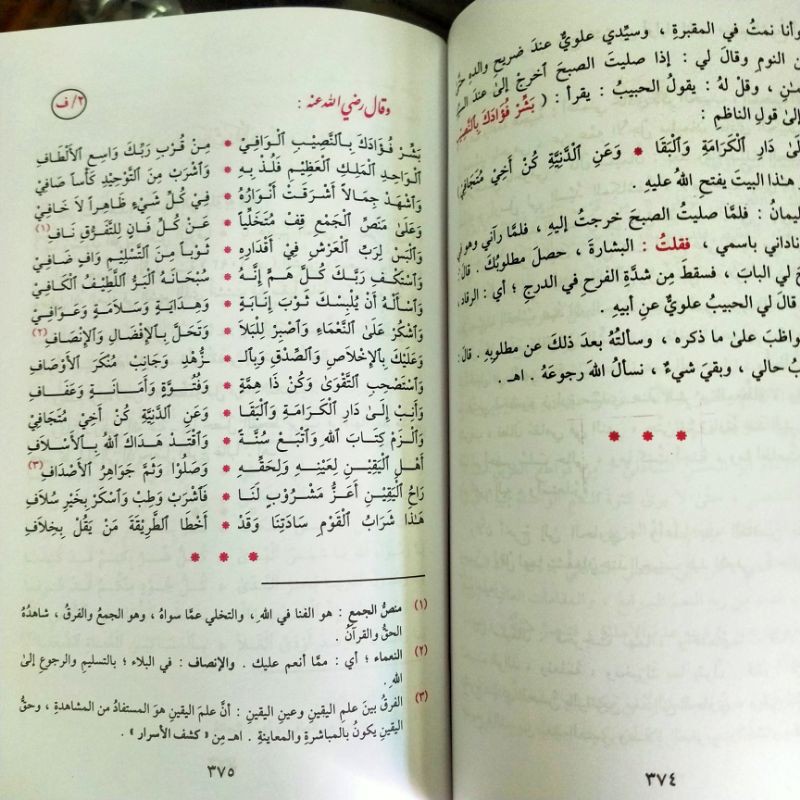 وأنا نمتُ في المقبرةِ ، وسيِّدي علويٌّ عندَ ضريحِ والدِهِ
النومِ وقالَ لي : إذا صليتَ الصبحَ اخرجْ إلىٰ عندِ
، وقلْ لهُ : يقولُ الحبيبُ : يقرأ : ( بَشِّرْ فُؤَادَكَ بِٱلنَّصِيْبِ
إلىٰ قولِ الناظمِ :
دَارِ ٱلْكَرَامَةِ وَٱلْبَقَا * وَعَنِ ٱلدَّنِيَّةِ كُنْ أَخِيْ مُتَجَافِيْ
هـٰذا البيتَ يفتحِ اللهُ عليهِ .
فلمَّا صليتُ الصبحَ خرجتُ إليهِ ، فلمَّا رآني وهو في
ناداني باسمي ، فقلتُ : البشارةَ ، حصلَ مطلوبُكَ . قالَ :
لي البابَ ، فسقطَ مِن شدَّةِ الفرحِ في الدرجِ ؛ أي : الرقاد ،
قالَ لي الحبيبُ علويٌّ عن أبيهِ .
علىٰ ما ذكره ، وسألتُهُ بعدَ ذلكَ عن مطلوبِهِ . قالَ :
حالي ، وبقيَ شيءٌ ، نسألُ اللهَ رجوعَهُ . اهـ .
* * *
٣٧٤
وقال رضي الله عنه :
٢/ف
بَشِّرْ فُؤَادَكَ بِٱلنَّصِيْبِ ٱلْوَافِيْ * مِنْ قُرْبِ رَبِّكَ وَاسِعِ ٱلْأَلْطَافِ
ٱلْوَاحِدِ ٱلْمَلِكِ ٱلْعَظِيْمِ فَلُذْ بِهِ * وَٱشْرَبْ مِنَ ٱلتَّوْحِيْدِ كَأْساً صَافِيْ
وَٱشْهَدْ جَمَالاً أَشْرَقَتْ أَنْوَارُهُ * فِيْ كُلِّ شَيْءٍ ظَاهِراً لاَ خَافِيْ
وَعَلَىٰ مَنَصِّ ٱلْجَمْعِ قِفْ مُتَخَلِّياً * عَنْ كُلِّ فَانٍ لِلتَّفَرُّقِ نَافِ(١)
وَٱلْبَسْ لِرَبِّ ٱلْعَرْشِ فِيْ أَقْدَارِهِ * ثَوْباً مِنَ ٱلتَّسْلِيْمِ وَافٍ ضَافِيْ
وَٱسْتَكْفِ رَبَّكَ كُلَّ هَمٍّ إِنَّهُ * سُبْحَانَهُ ٱلْبَرُّ ٱللَّطِيْفُ ٱلْكَافِيْ
وَٱسْأَلْهُ أَنْ يُلْبِسْكَ ثَوْبَ إِنَابَةٍ * وَهِدَايَةٍ وَسَلاَمَةٍ وَعَوَافِيْ
وَٱشْكُرْ عَلَىٰ ٱلنَّعْمَاءِ وَٱصْبِرْ لِلْبَلاَ * وَتَحَلَّ بِٱلْإِفْضَالِ وَٱلْإِنْصَافِ(٢)
وَعَلَيْكَ بِٱلْإِخْلاَصِ وَٱلصِّدْقِ وَبِٱلـ * ـزُّهْدِ وَجَانِبْ مُنْكَرَ ٱلْأَوْصَافِ
وَٱسْتَصْحِبِ ٱلتَّقْوَىٰ وَكُنْ ذَا هِمَّةٍ * وَفُتُوَّةٍ وَأَمَانَةٍ وَعَفَافِ
وَأَنِبْ إِلَىٰ دَارِ ٱلْكَرَامَةِ وَٱلْبَقَا * وَعَنِ ٱلدَّنِيَّةِ كُنْ أَخِيْ مُتَجَافِيْ
وَٱلْزَمْ كِتَابَ ٱللهِ وَٱتْبَعْ سُنَّةً * وَٱقْتَدْ هَدَاكَ ٱللهُ بِٱلْأَسْلاَفِ
أَهْلِ ٱلْيَقِيْنِ لِعَيْنِهِ وَلِحَقِّهِ * وَصَلُوا وَثَمَّ جَوَاهِرُ ٱلْأَصْدَافِ(٣)
رَاحُ ٱلْيَقِيْنِ أَعَزُّ مَشْرُوْبٍ لَنَا * فَٱشْرَبْ وَطِبْ وَٱسْكَرْ بِخَيْرِ سُلاَفِ
هَـٰذَا شَرَابُ ٱلْقَوْمِ سَادَتِنَا وَقَدْ * أَخْطَا ٱلطَّرِيْقَةَ مَنْ يَقُلْ بِخِلاَفِ
* * *
(١) منصُّ الجمعِ : هو الفنا في اللهِ ، والتخلي عمَّا سواهُ ، وهو الجمعُ والفرقُ ، شاهدُهُ
الحقُّ والقرآنُ .
(٢) النعماء ؛ أي : ممَّا أنعم عليك . والإنصاف : في البلاء ؛ بالتسليمِ والرجوعِ إلىٰ
اللهِ .
(٣) الفرقُ بينَ علمِ اليقينِ وعينِ اليقينِ : أنَّ علمَ اليقينِ هوَ المستفادُ من المشاهدةِ ، وحقُّ
اليقينِ يكونُ بالمباشرةِ والمعاينةِ . اهـ مِن « كشف الأسرار » .
٣٧٥